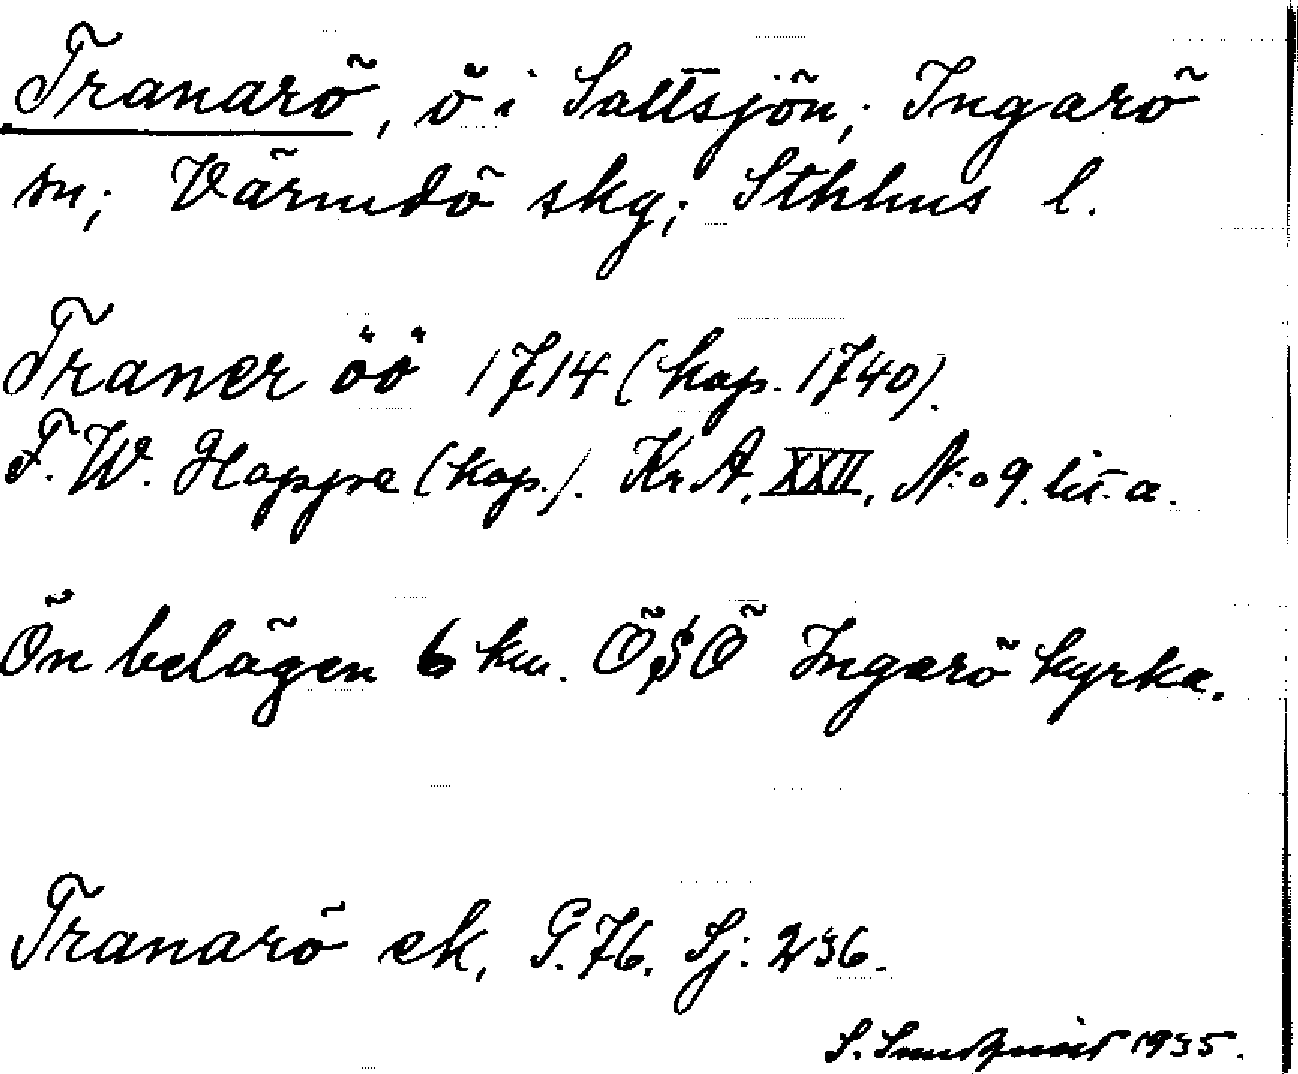 Tranarö, ö i Saltsjön; Ingarö
sn; Värmdö skg; Sthlms l.
Traner öö 1714 (kop. 1740).
F. W. Hoppe (kop.). KrA, XXII, N:o 9. lit. a.
Ön belägen 6 km. ÖSÖ Ingarö kyrka.
Tranarö ek, G. 76. Sj: 236.
S. 1935.